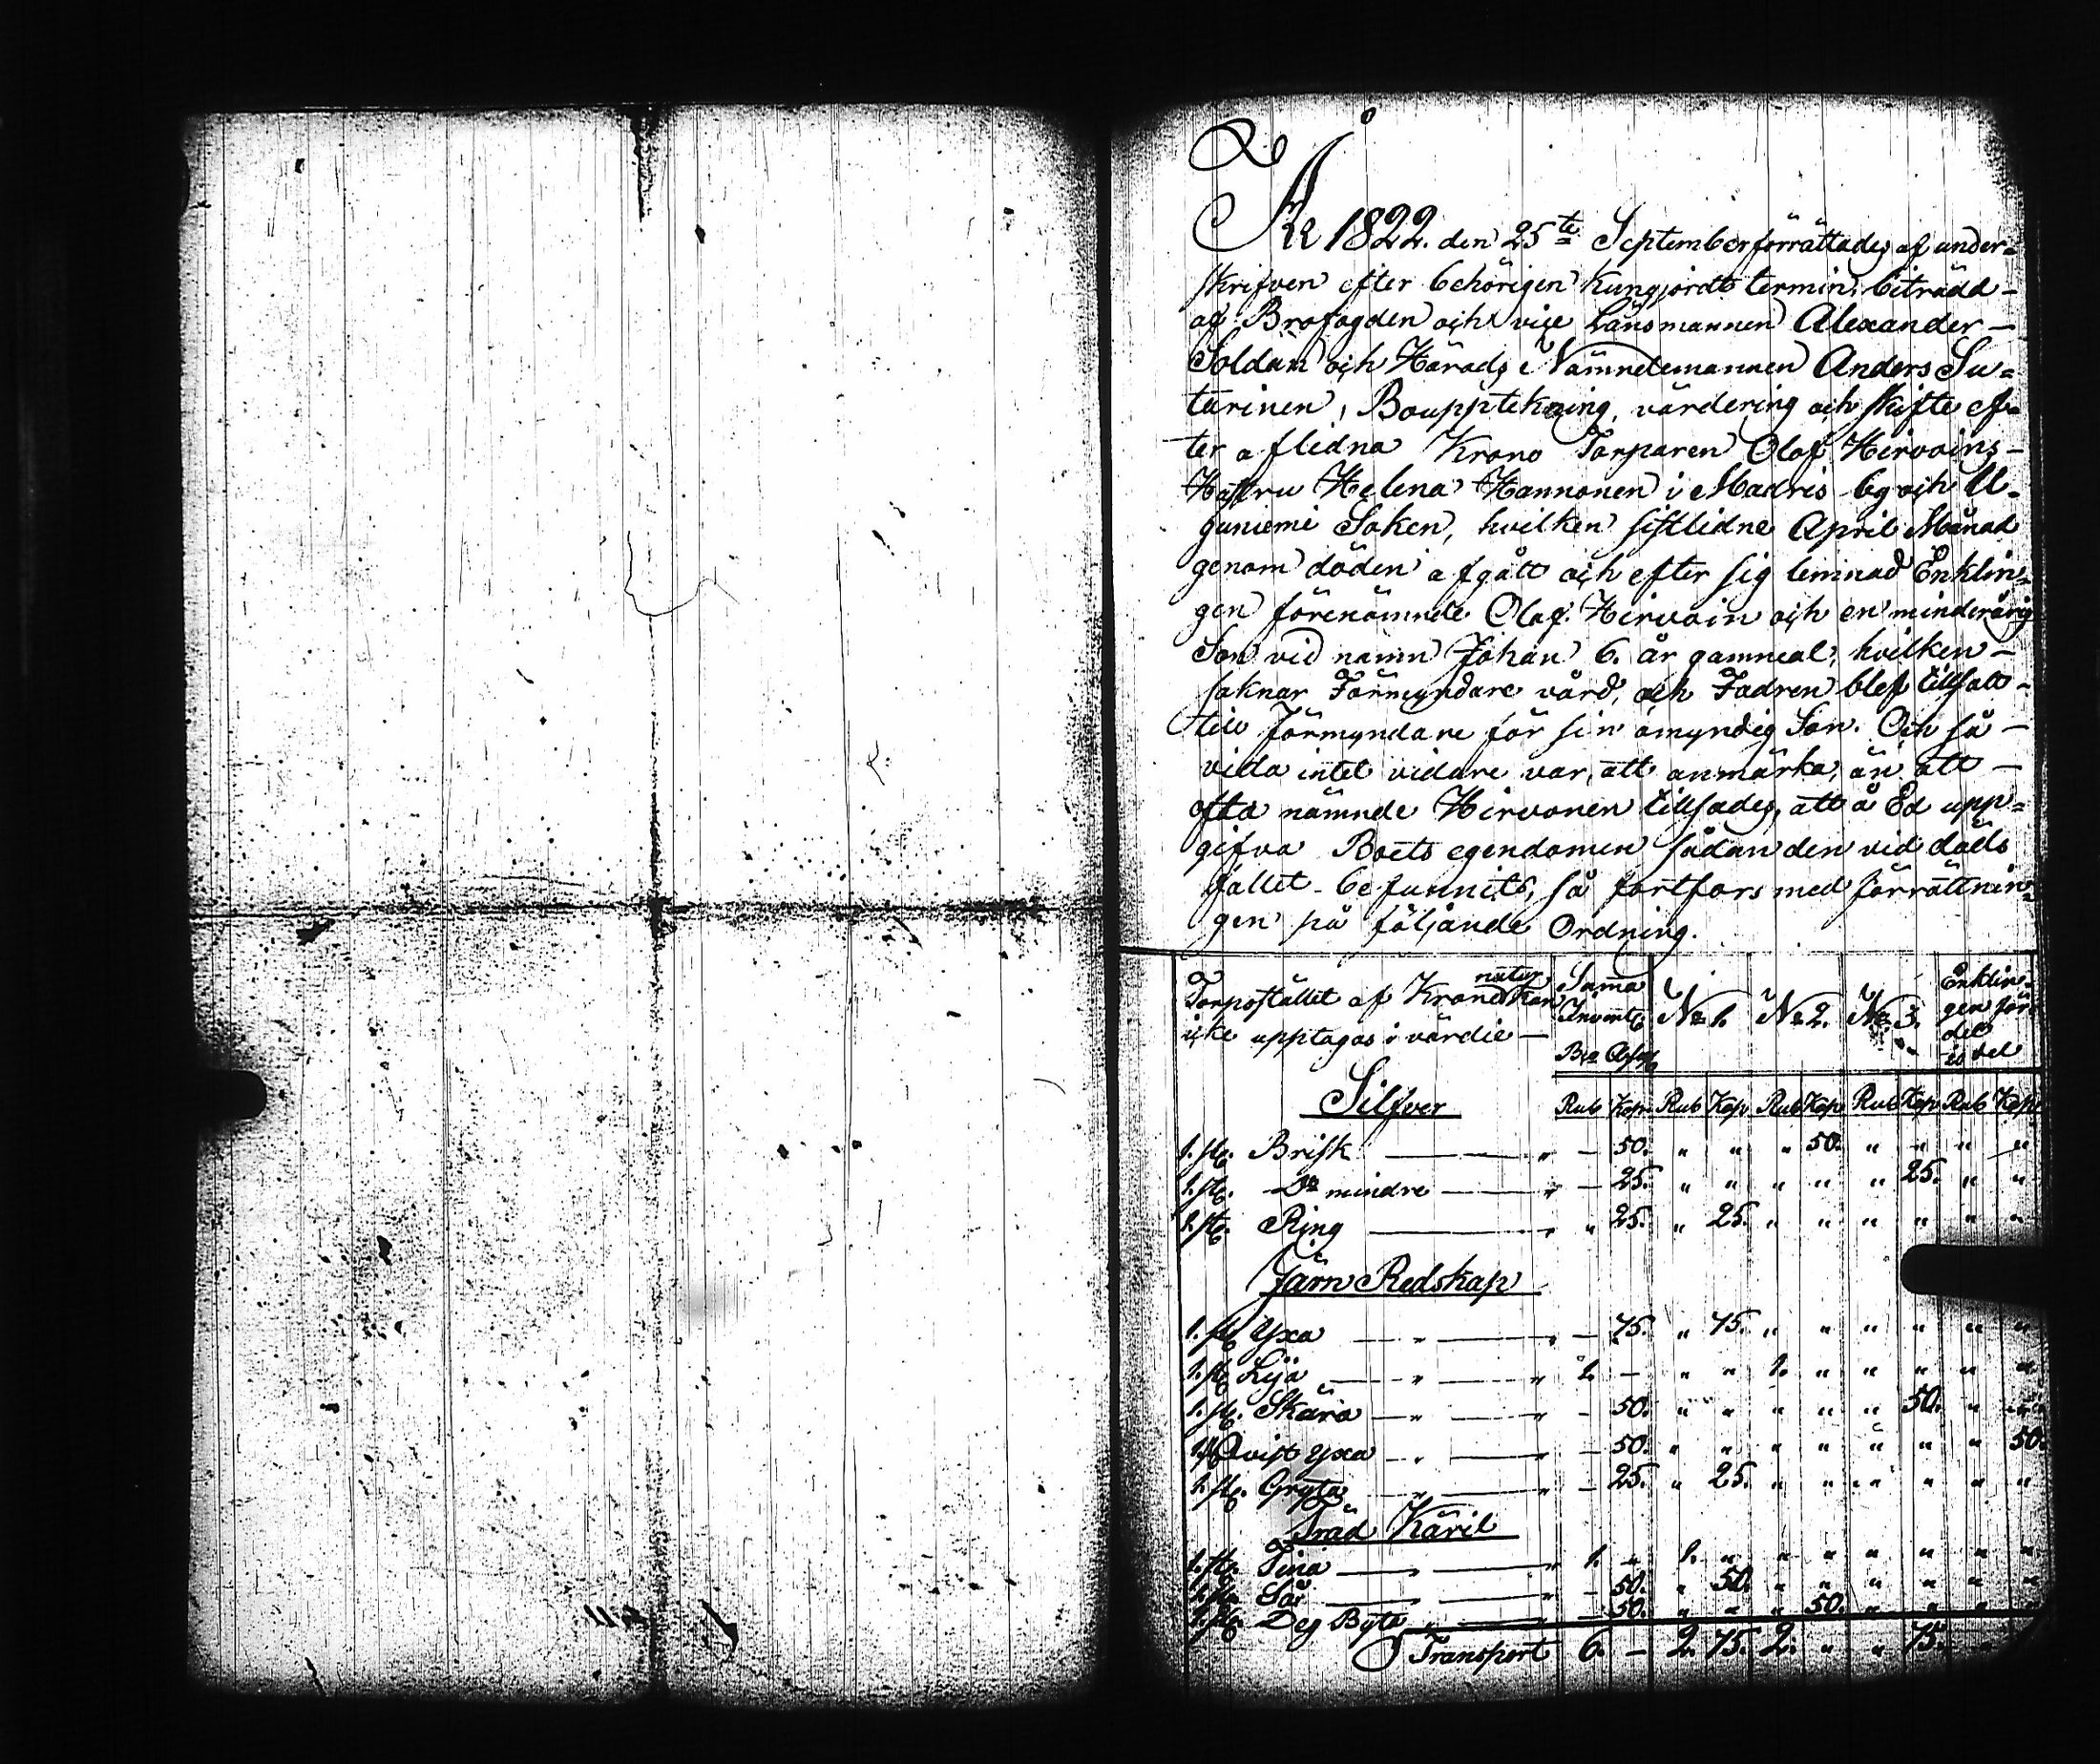 År 1822. den 25te September förrättades af under=
skrifven efter behörigen kungjordt termin, biträdd -
af Brofogden och vice Länsmannen Alexander -
Soldan och Härads Nämndemannen Anders Su=
tarinen, Bouppteckning, värdering och skifte ef=
ter aflidna Krono Torparen Olof Hirvoins -
Hustru Helena Hannonen i Madris by och U=
guniemi Soken, hvilken sistlidne April Månad
genom döden afgått och efter sig lemnad Enklin=
gen förenämnde Olof Hirvoin och en minderårig
Son vid namn Johan 6. år gammal, hvilken -
saknar Förmyndare vård, och Fadren blef tillsatt -
till förmyndare för sin omyndig Son. Och så -
vida intet vidare var att anmärka, än att -
ofta nämnde Hirvonen tillsades, att å Ed upp=
gifva Boets egendomen sådan den vid döds
fallet befunnits, så fortfors med förrättnin=
gen på följande Ordning.
Torpstället af Krono natur kan
icke upptagas i värdie -
Summa Invent. N: 1. N: 2. N: 3. Enklin=
gen för
del
Silfver Rub Kop Rub Kop Rub Kop Rub Kop Rub Kop
1. st. Brisk " - 50. " " " 50. " " " "
1. st. Do mindre " - 25. " " " " " 25. " "
1. st. Ring " " 25. " 25. " " " " " "
Järn Redskap
1. st. Yxa " " - 75. " 75. " " " " " "
1. st. Lija " " 1. - " " 1. " " " " "
1. st. Skära " " - 50. " " " " " 50. "
1. st. Qvist yxa " - 50. " " " " " " " 50.
1. st. Gryta " " - 25. " 25. " " " " " "
Träd Käril
1. st. Tina " " 1. - 1. " " " " " " "
1. st. Så " - 50. " 50. " " " " " "
1. st. Deg Byta " " - 50. " " " 50. " " " "
Transport 6. - 2. 75. 2. " " 75.